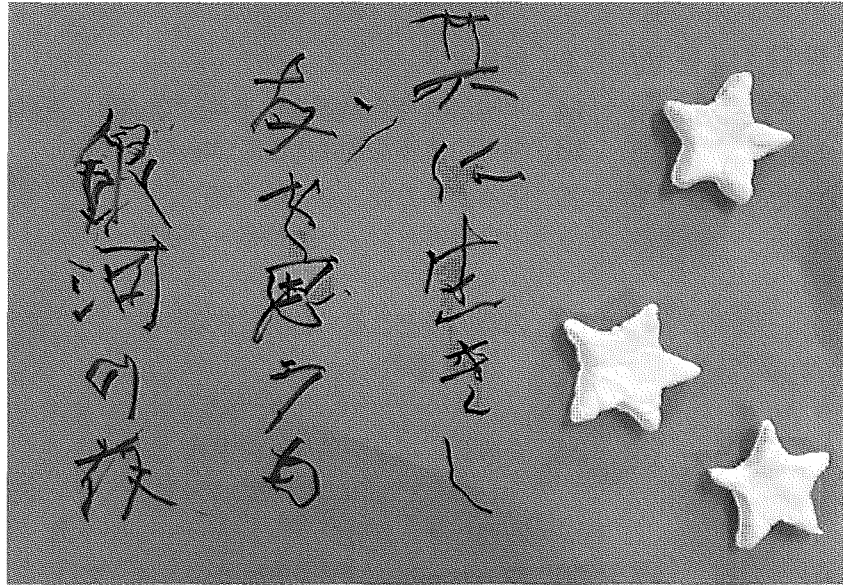 共に生きし
友を思うも
銀河の夜